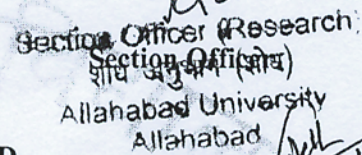 Section Officer (Research
Section Officer
अनुभाग (शोध)
Allahabad University
Allahabad